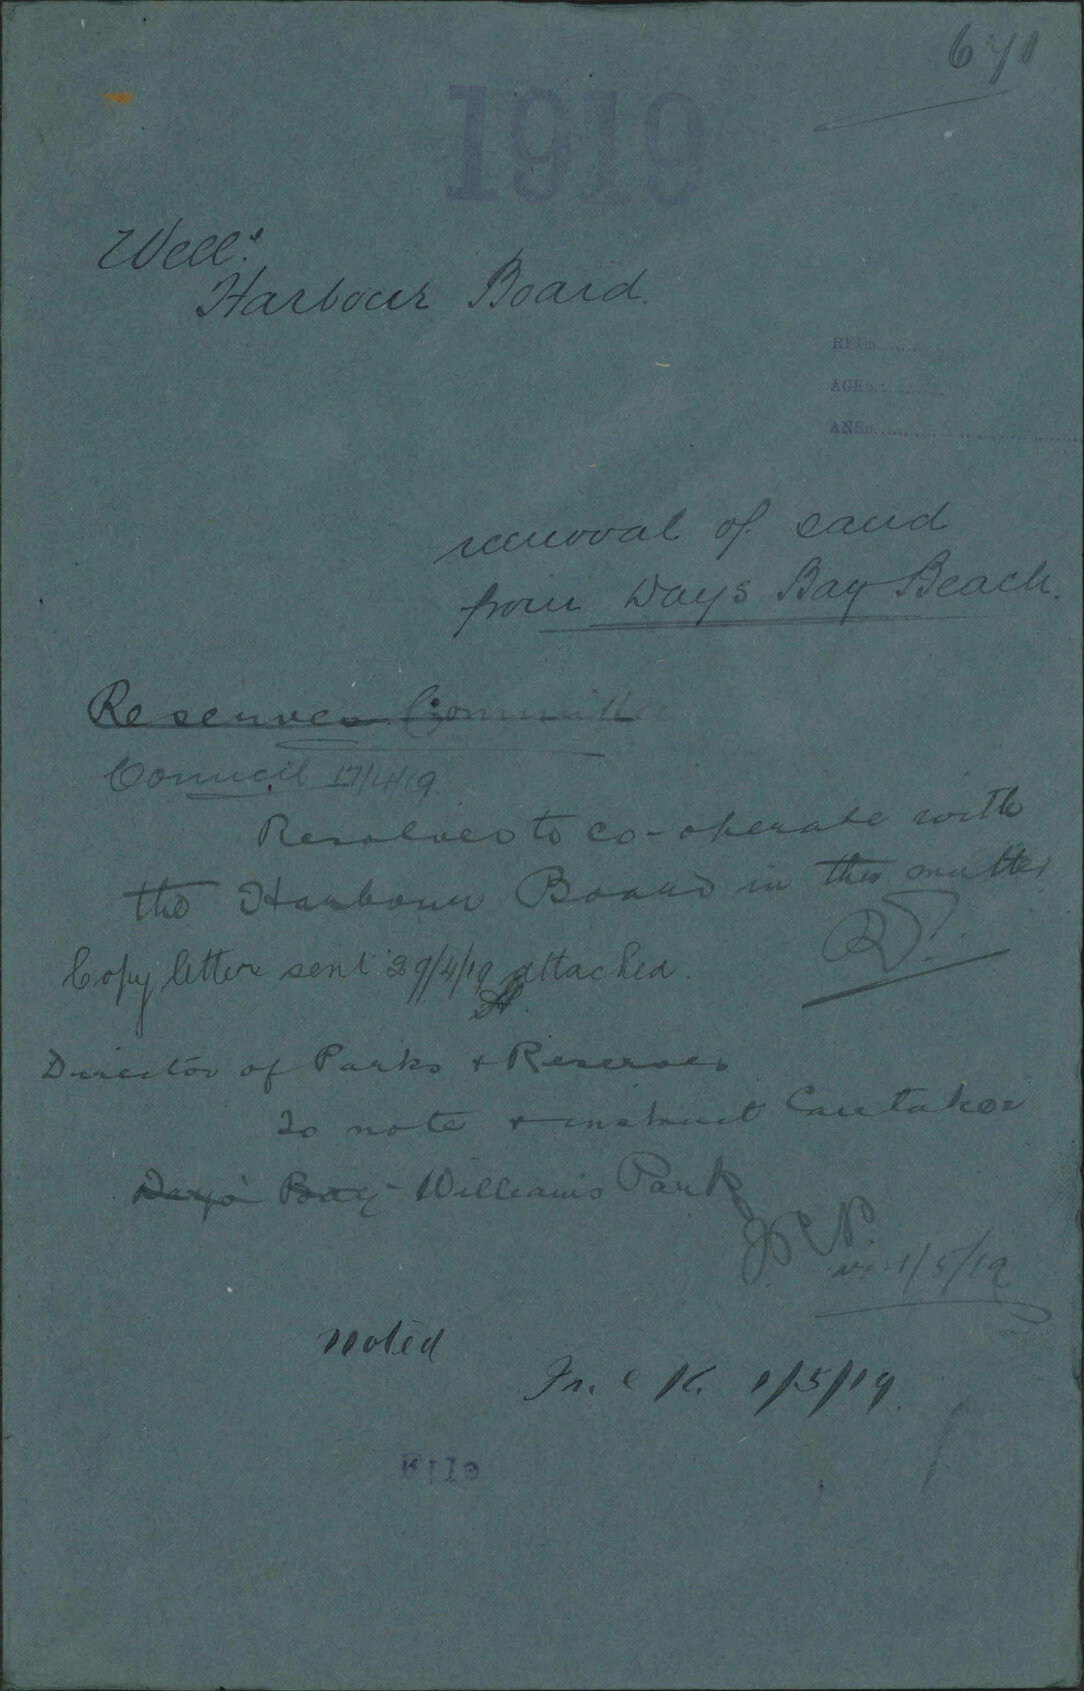 671
1919
Well:
Harbour Board.
RECD..........
ACKD..........
ANSD..........
removal of sand
from Days Bay Beach.
Reserves Committee
Council 17/4/19
Resolved to co-operate with
the Harbour Board in this matter
Copy letter sent 29/4/19 attached.
Director of Parks + Reserves
To note + instruct Caretaker
Days Bay Williams Park
1/5/19
noted
1/5/19
File